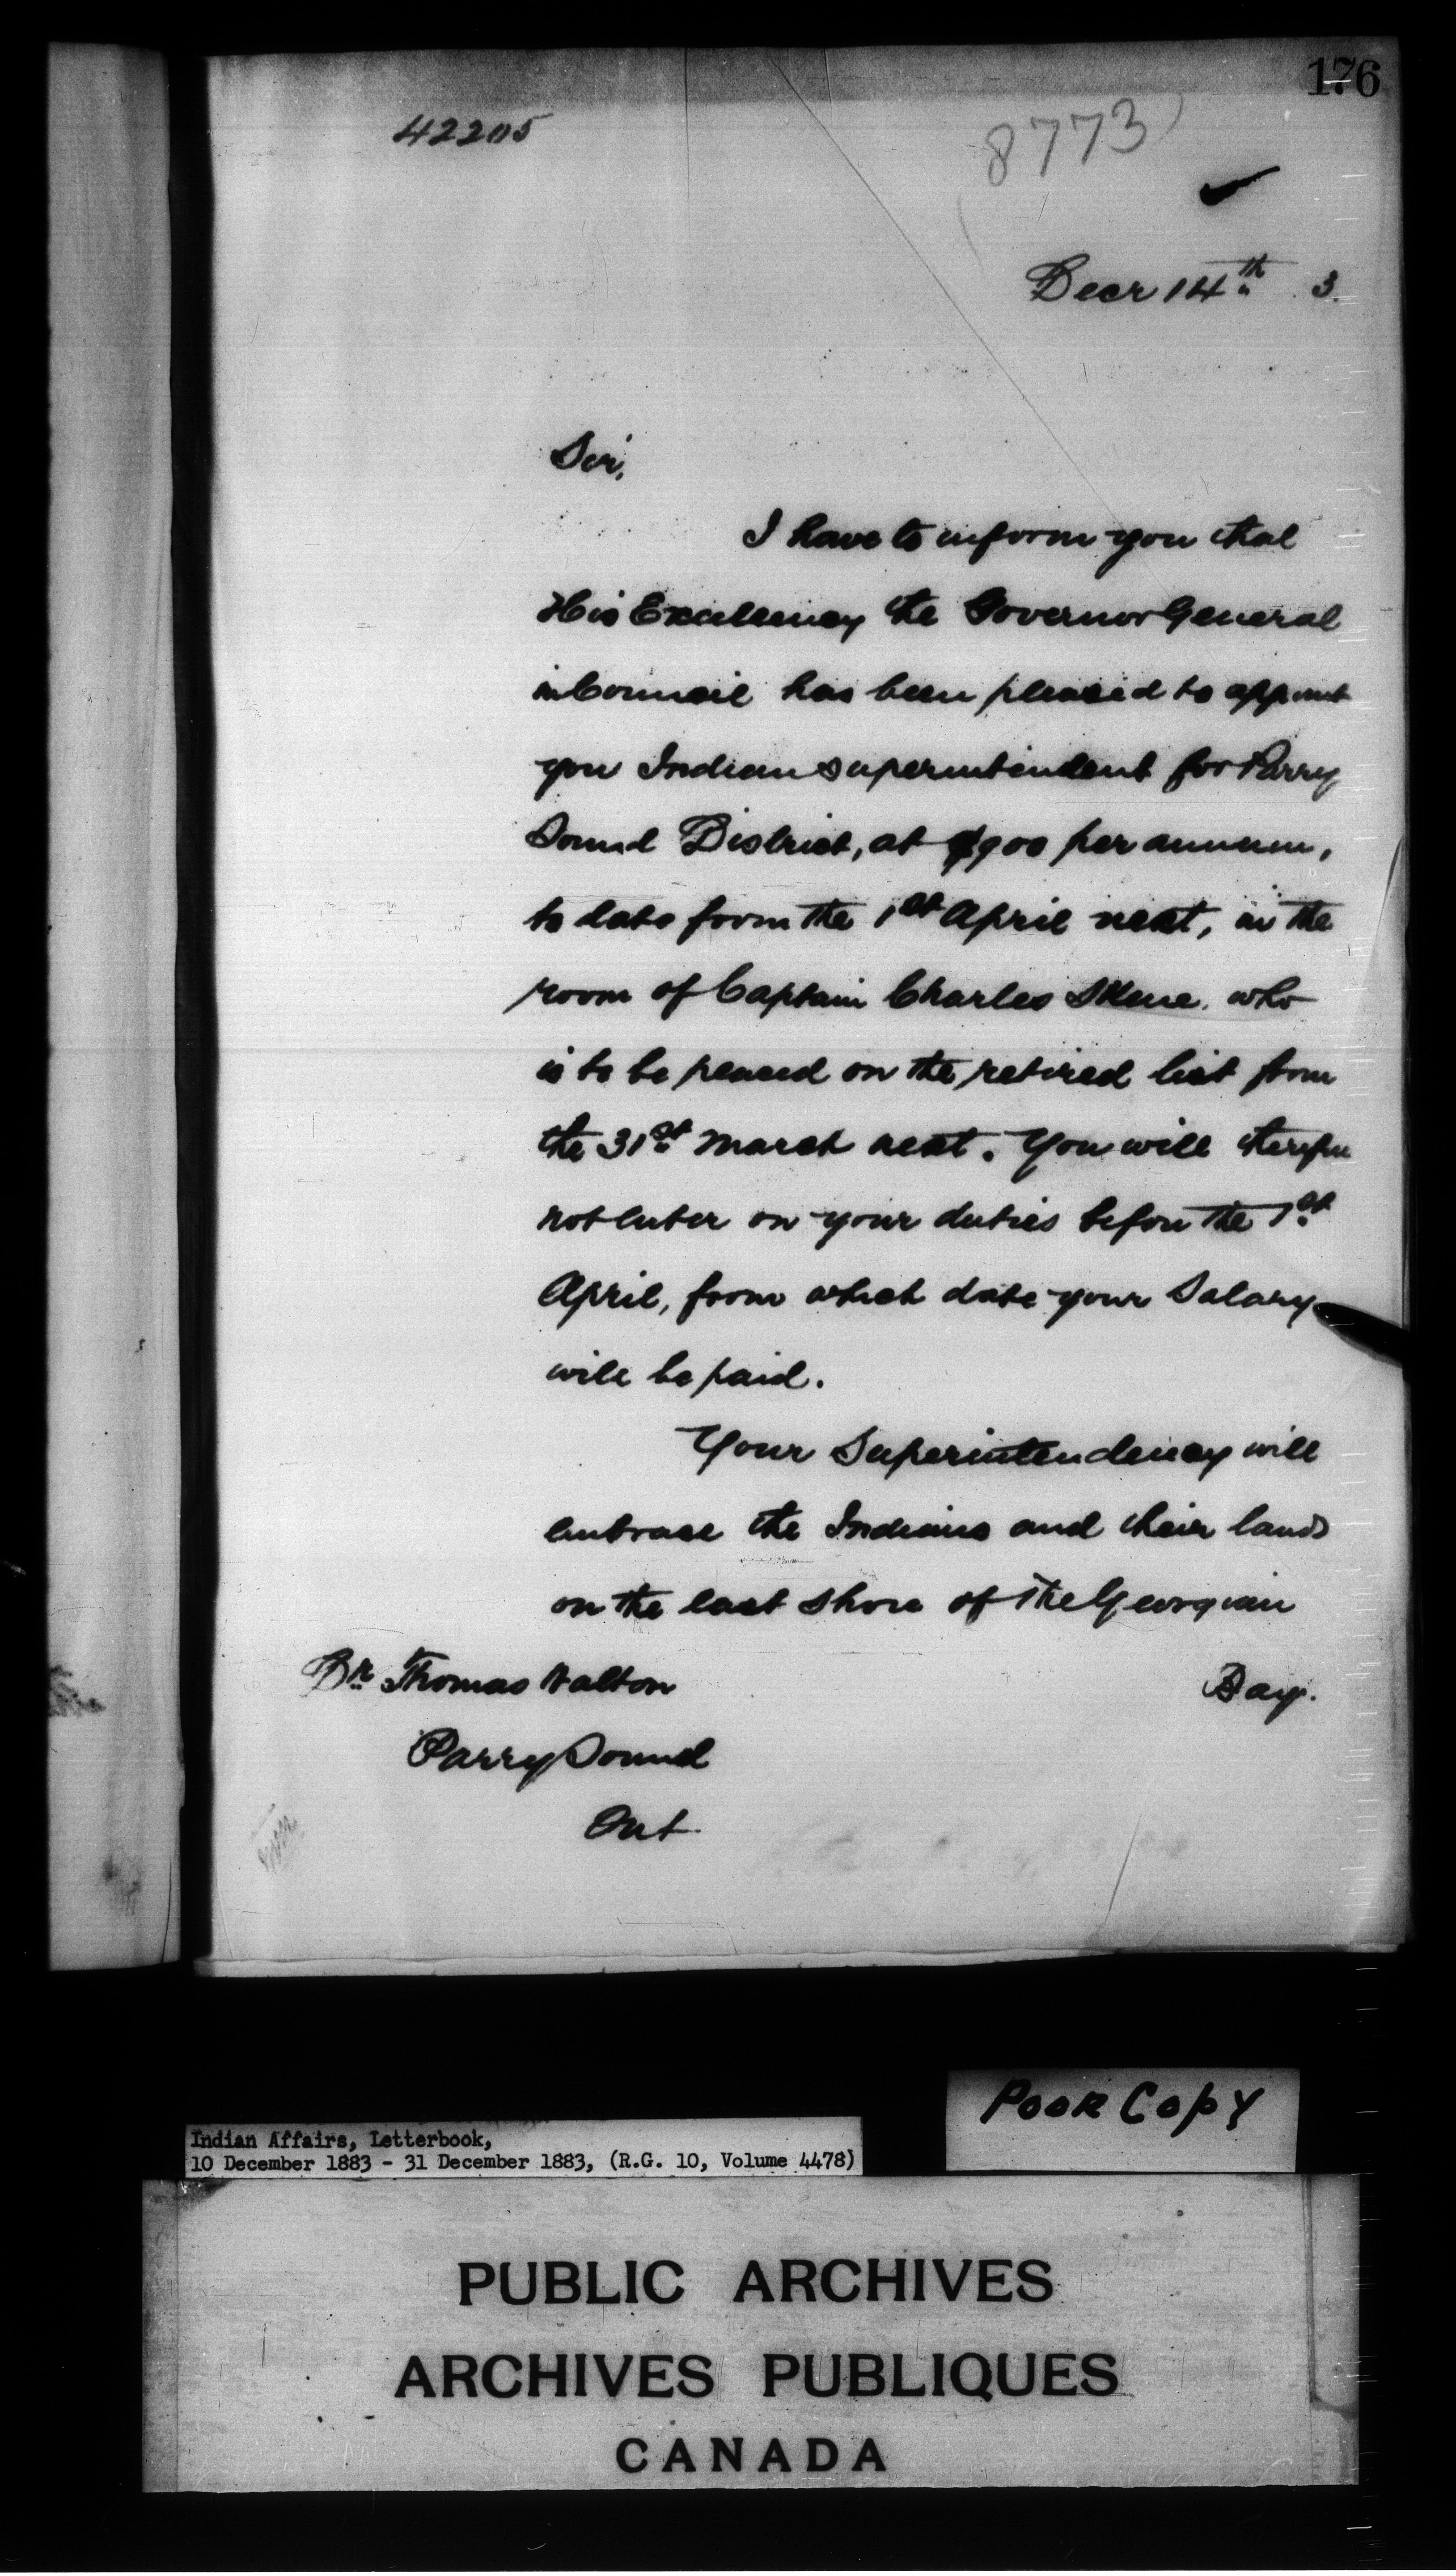 176
42205
8773
Decr 14th 3
Sir,
I have to inform you that
His Excellency the Governor General
in Council has been pleased to appoint
you Indian Superintendent for Parry
Sound District, at $900 per annum,
to date from the 1st April next, in the
room of Captain Charles Skene. who
is to be placed on the retired list from
the 31st March next. You will therefore
not enter on your duties before the 1st
April, from which date your Salary
will be paid.
Your Superintendency will
embrace the Indians and their lands
on the east shore of the Georgian
Bay.
Dr. Thomas Walton
Parry Sound
Ont.
Poor Copy
Indian Affairs, Letterbook,
10 December 1883 - 31 December 1883, (R.G. 10, Volume 4478)
PUBLIC ARCHIVES
ARCHIVES PUBLIQUES
CANADA